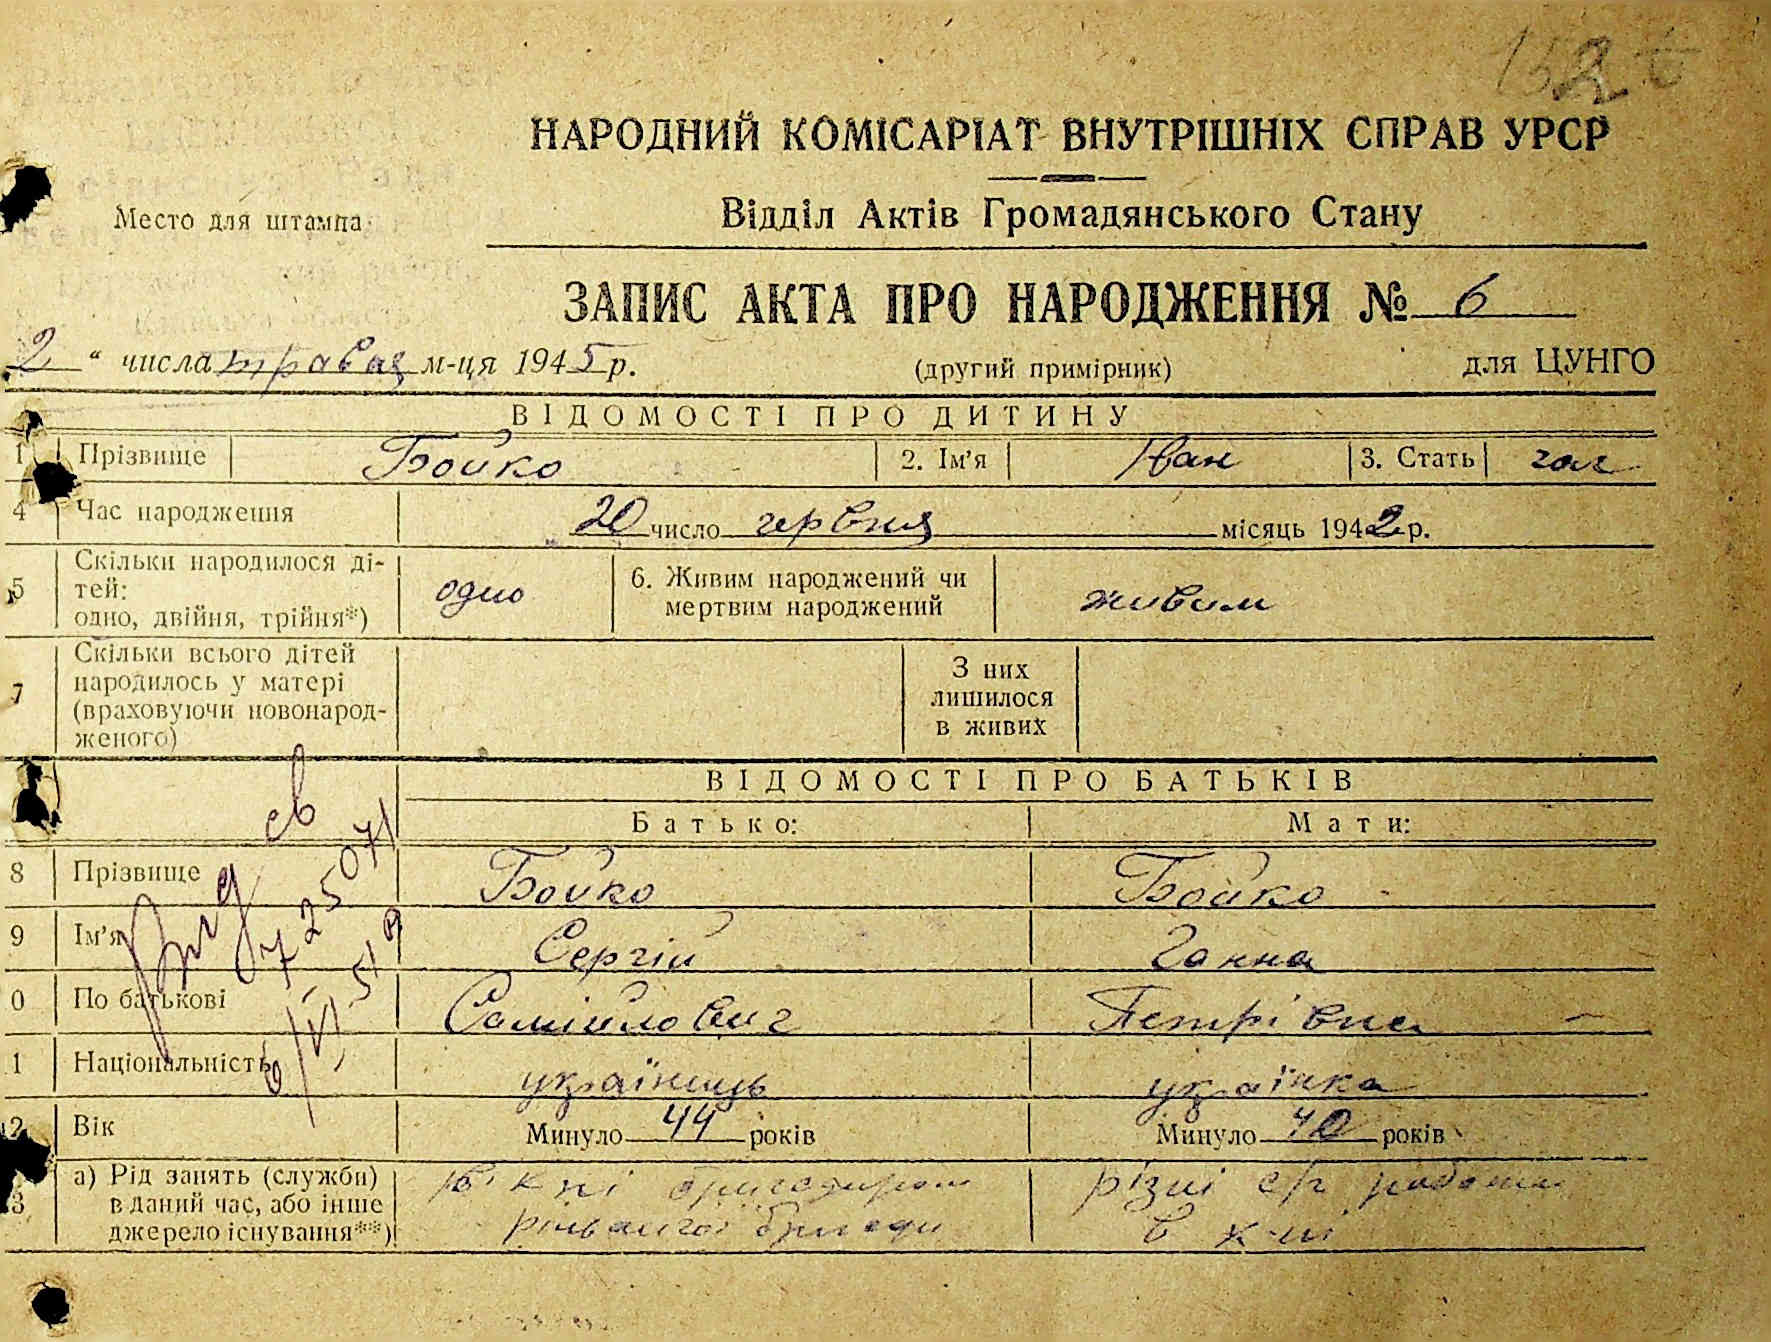 152
НАРОДНИЙ КОМІСАРІАТ ВНУТРІШНІХ СПРАВ УРСР
Место для штампа
Відділ Актів Громадянського Стану
ЗАПИС АКТА ПРО НАРОДЖЕННЯ № 6
2 " числа травня м-ця 1945 р. (другий примірник) для ЦУНГО
ВІДОМОСТІ ПРО ДИТИНУ
1 Прізвище Бойко 2. Ім'я Іван 3. Стать чол
4 Час народження 20 число червня місяць 1942 р.
5 Скільки народилося ді-
тей:
одно, двійня, трійня*) одно 6. Живим народжений чи
мертвим народжений живим
7 Скільки всього дітей
народилось у матері
(враховуючи новонарод-
женого) З них
лишилося
в живих
ВІДОМОСТІ ПРО БАТЬКІВ
Батько: Мати:
8 Прізвище Бойко Бойко
9 Ім'я Сергій Ганна
0 По батькові Самійлович Петрівна
1 Національність українець українка
2 Вік Минуло 44 років Минуло 40 років
3 а) Рід занять (служби)
в даний час, або інше
джерело існування**)
в к-пі бригадиром
рільничої бригади
різні с/г роботи
в к-пі
Вид св
725071
6/VI-51 р